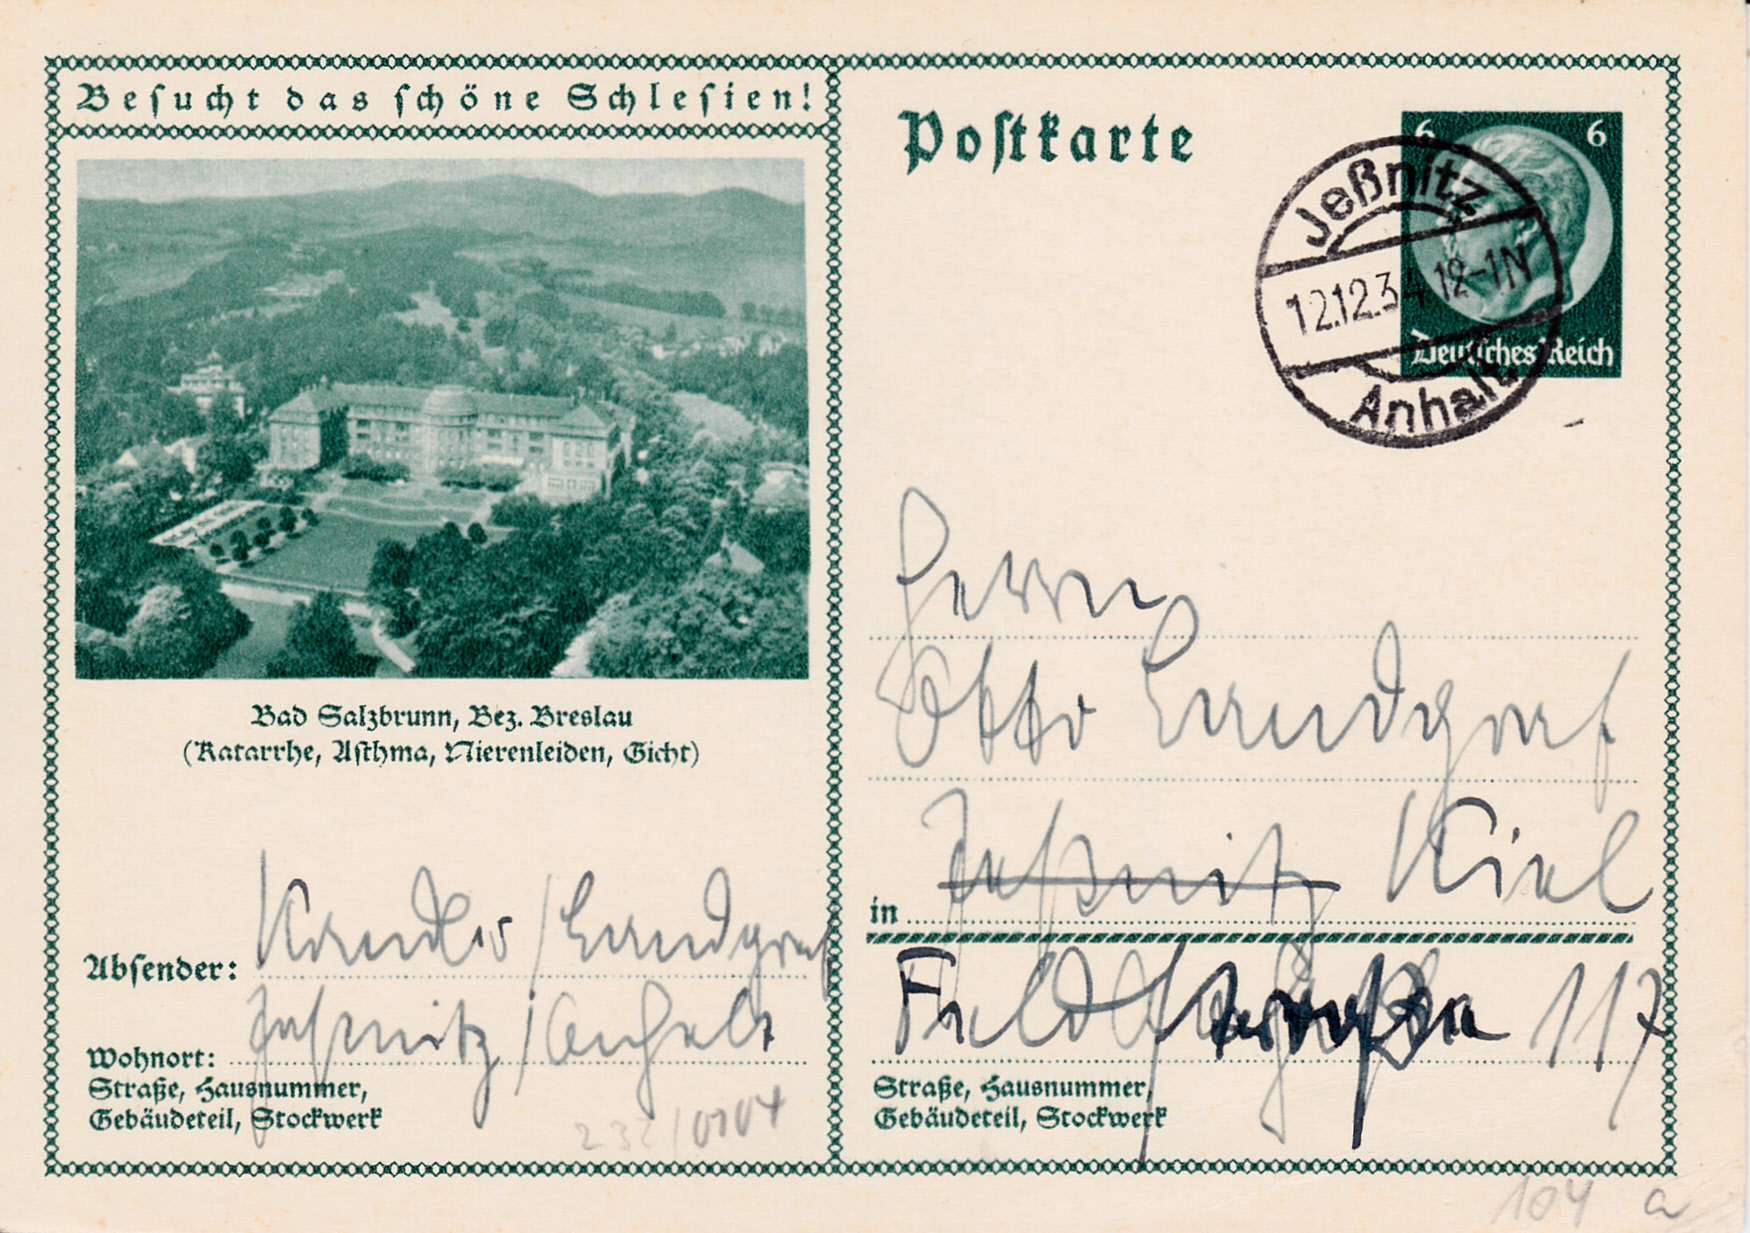 Besucht das schöne Schlesien!
Bad Salzbrunn, Bez. Breslau
(Katarrhe, Asthma, Nierenleiden, Gicht)
Absender: Kandler / Landgraf
Wohnort: Jeßnitz / Anhalt
Straße, Hausnummer,
Gebäudeteil, Stockwerk
232/0104
Postkarte
6 6
Deutsches Reich
Jeßnitz
12.12.34 12-1N
Anhalt.
Herrn
Otto Landgraf
in Jeßnitz Kiel
Feldstraße 117
Straße, Hausnummer,
Gebäudeteil, Stockwerk
104 a